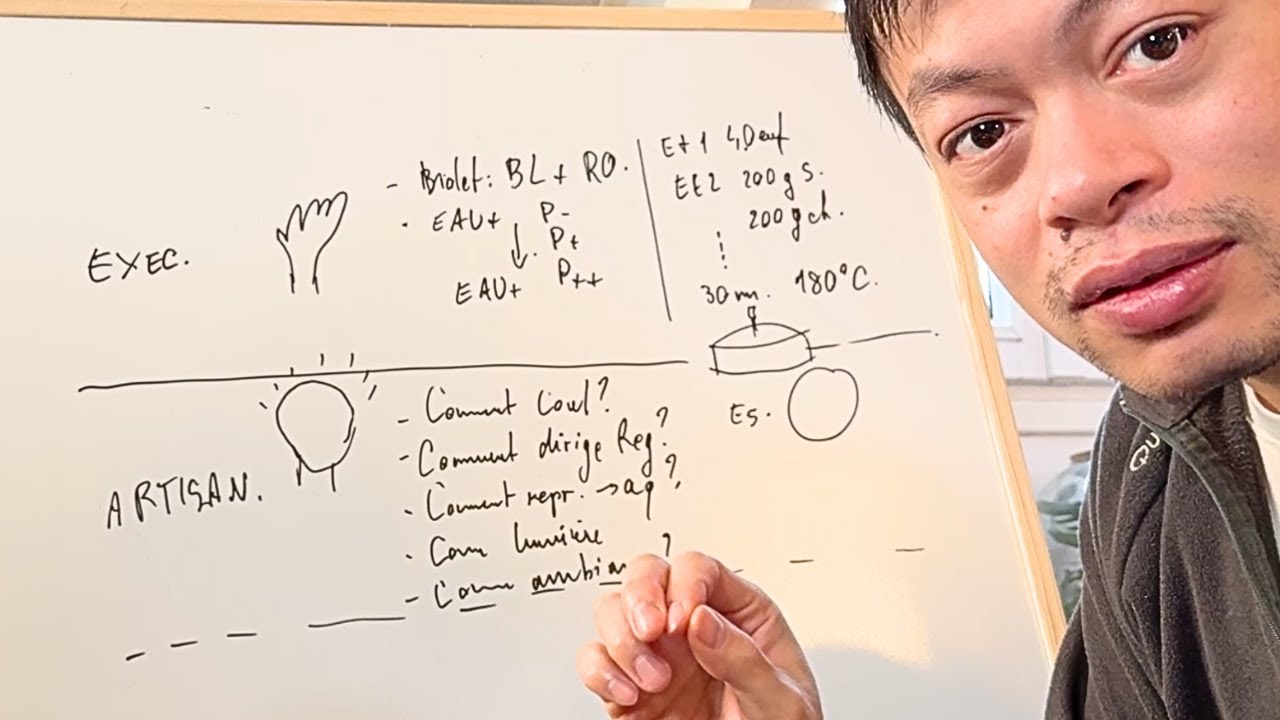 EXEC.
- Violet: BL + RO.
- EAU+ P-
P+
EAU+ P++
Et1
Et2 200g S.
200g ch.
30m. 180°C.
ARTISAN.
- Comment Coul?
- Comment dirige Reg?
- Comment repr. → aq?
- Com lumière
- Com ambian ?
E5.
QU